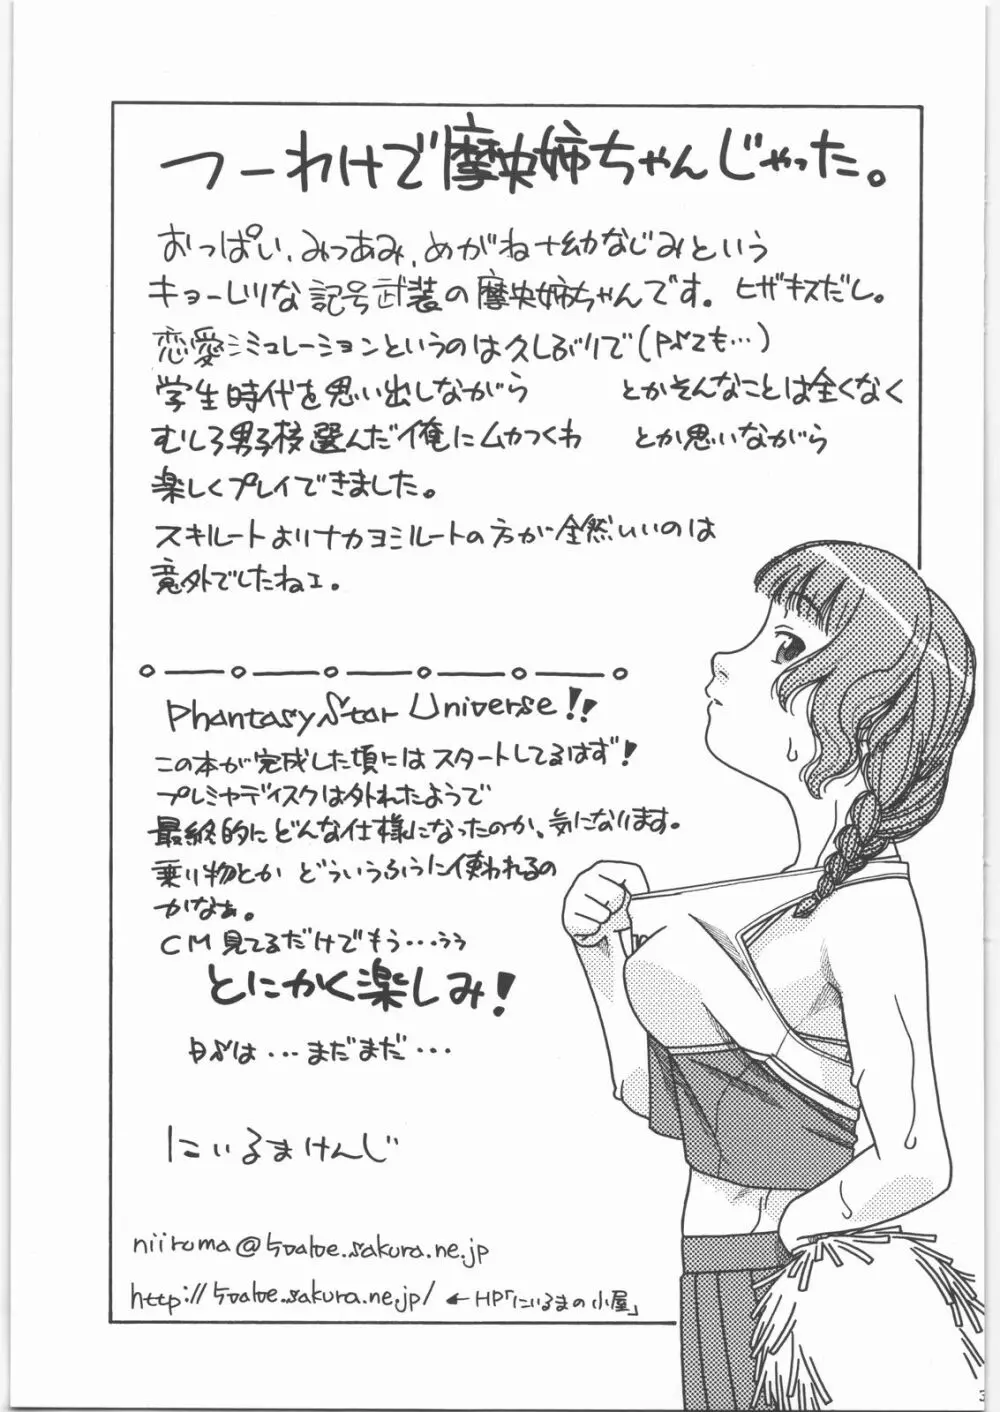 つーわけで摩央姉ちゃんじゃった。
おっぱい、みつあみ、めがね+幼なじみという
キョーレツな記号武装の摩央姉ちゃんです。ヒザキスだし。
恋愛シミュレーションというのは久しぶりで(PSでも…)
学生時代を思い出しながら とかそんなことは全くなく
むしろ男子校選んだ俺にムカつくわ とか思いながら
楽しくプレイできました。
スキルートよりナカヨシルートの方が全然いいのは
意外でしたねェ。
Phantasy Star Universe!!
この本が完成した頃にはスタートしてるはず!
プレミヤディスクは外れたようで
最終的にどんな仕様になったのか、気になります。
乗り物とか どういうふうに使われるの
かなぁ。
CM見てるだけでもう…うぅ
とにかく楽しみ!
は…まだまだ…
にいるまけんじ
niiruma@ .sakura.ne.jp
http:// .sakura.ne.jp/ ←HP「にいるまの小屋」
3